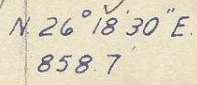 N. 26° 18' 30" E.
858.7